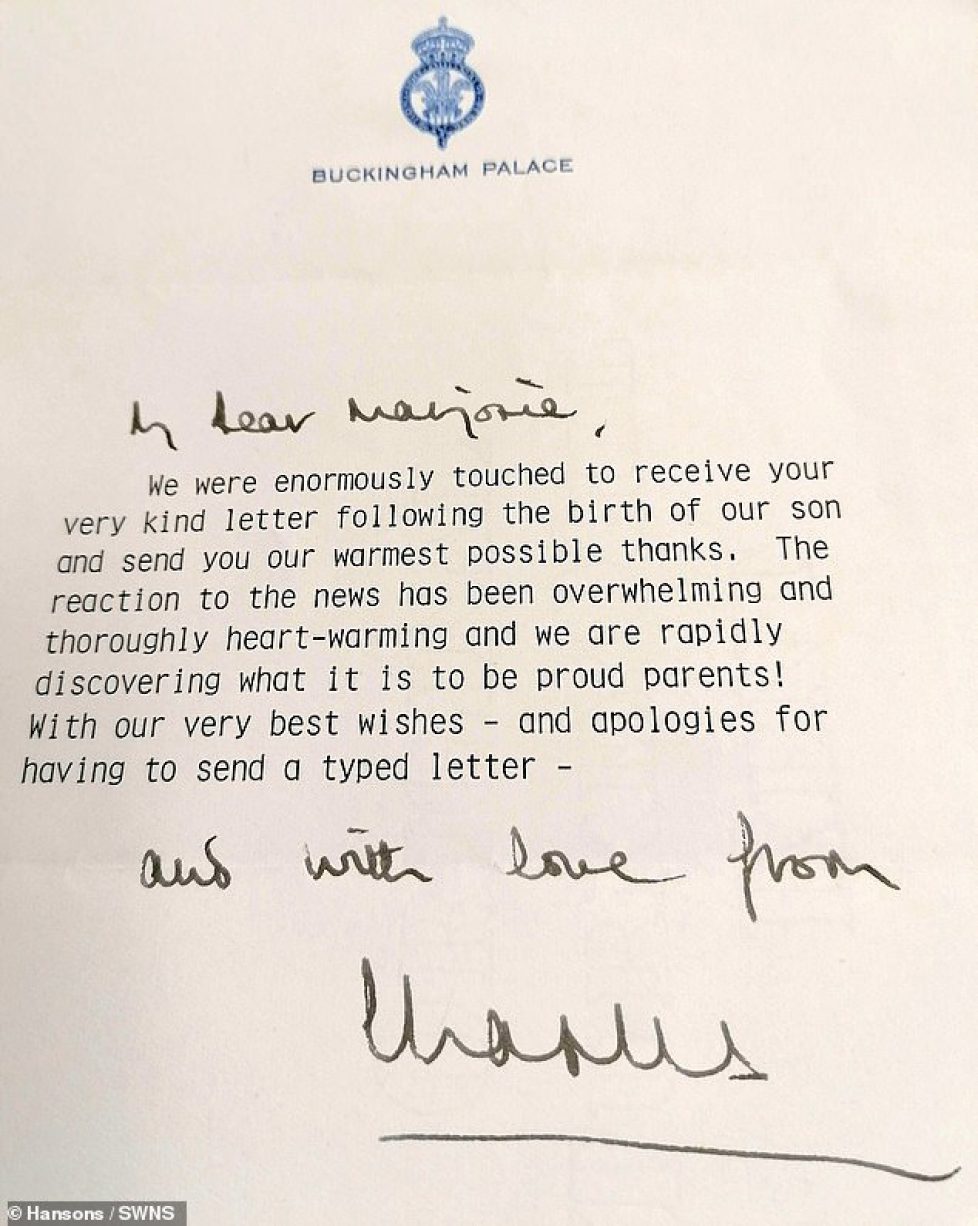 BUCKINGHAM PALACE
My dear Marjorie,
We were enormously touched to receive your
very kind letter following the birth of our son
and send you our warmest possible thanks. The
reaction to the news has been overwhelming and
thoroughly heart-warming and we are rapidly
discovering what it is to be proud parents!
With our very best wishes - and apologies for
having to send a typed letter -
and with love from
Charles
© Hansons / SWNS